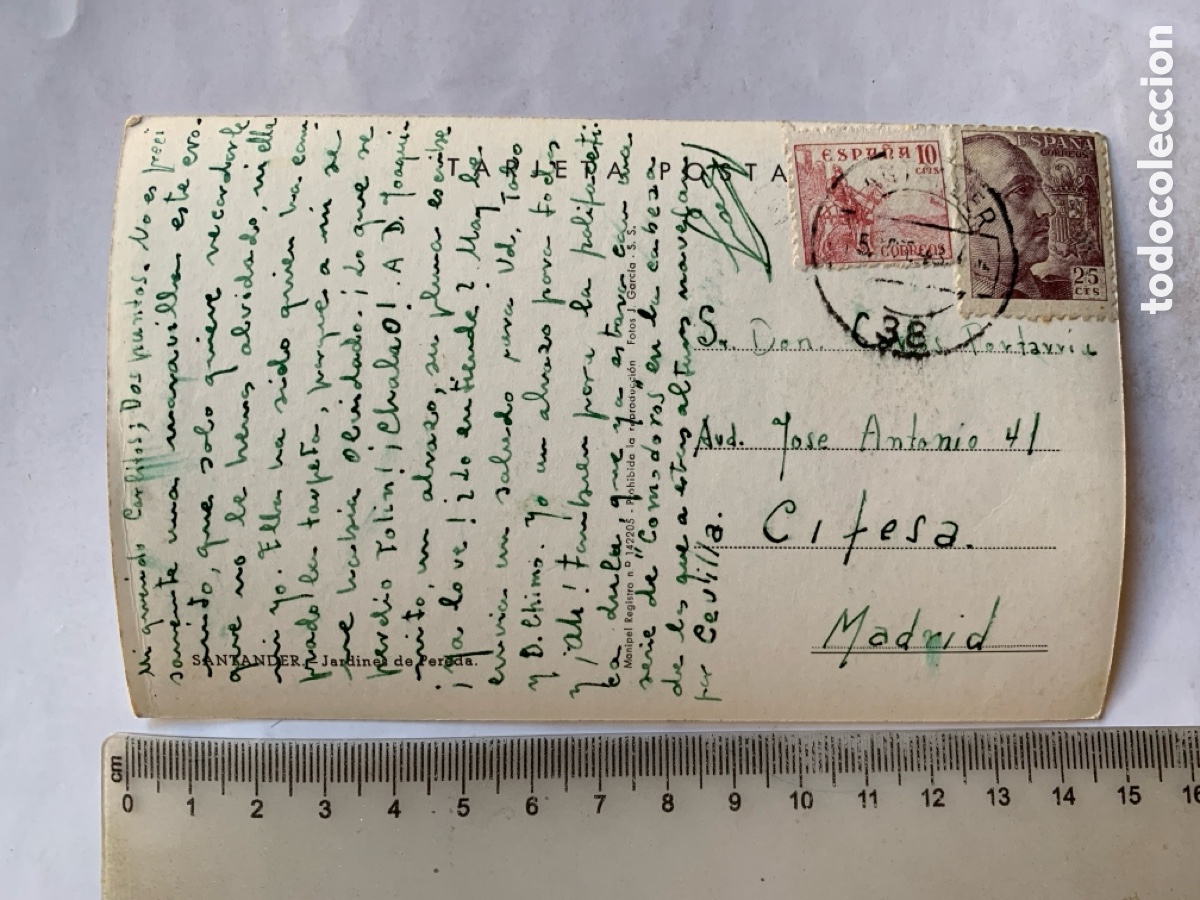 Mi querido Carlitos; Dos puntos. No es preci
samente una maravilla este evo
minto, que solo quiere recordarle
que no le hemos olvidado, ni ella
ni yo. Ella ha sido quien ha com
prado la tarjeta, porque a mi se
me habia olvidado. ¡Lo que se
perdió Tolin! ¡Chalao! A D. Joaqui
nito, un abrazo, su pluma escribe
¡ya lo ve! ¿do entiende? May le
envia un saludo para Vd, Tato
y D. Chimo. Yo un abrazo para todos
y ¡ah! tambien para la polifaceti
ca dula, que ya estará con una
serie de "Comodoros" en la cabeza
de los que a estas alturas navegan
por Cevilla.
SANTANDER.-Jardines de Pereda.
TARJETA POSTAL
Manipel Registro n.º 142205 - Prohibida la reproducción Fotos J. García - S. S.
ESPAÑA 10
CTS
CORREOS
ESPAÑA
CORREOS
25
CTS
SANTANDER
5
38
Sr. Don. Portavria
Avd. Jose Antonio 41
Cifesa.
Madrid
cm
0 1 2 3 4 5 6 7 8 9 10 11 12 13 14 15 16
todocoleccion